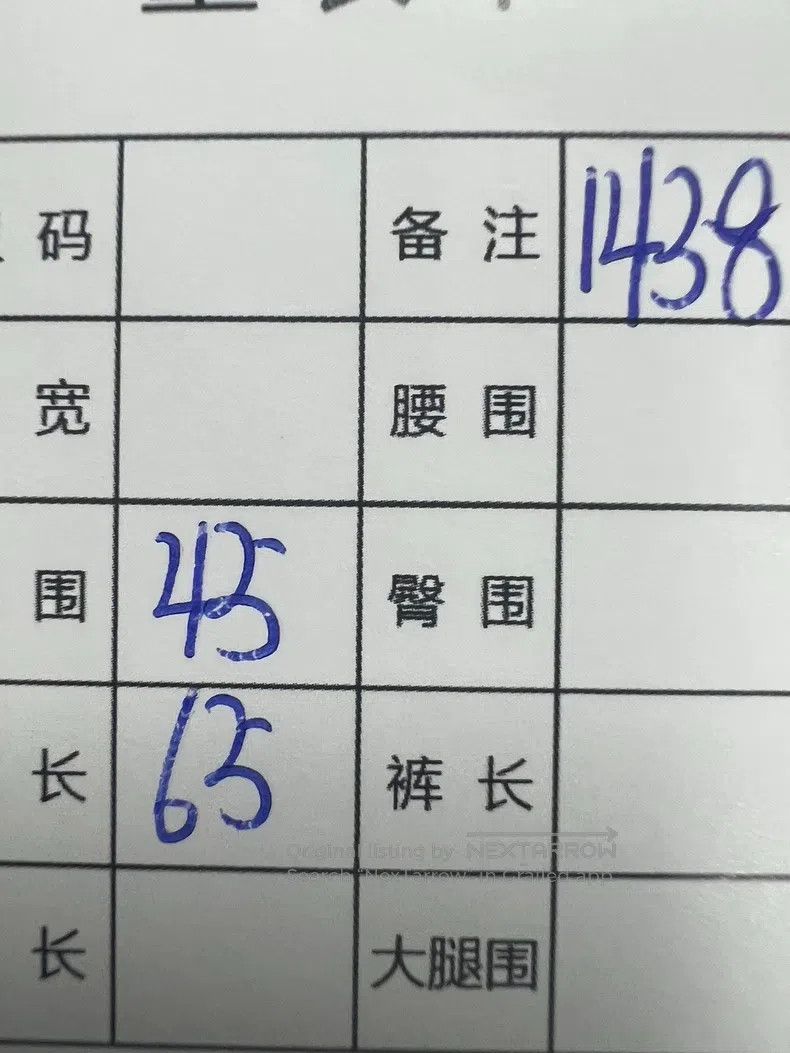 码 备注 1438
宽 腰围
围 45 臀围
长 65 裤长
Original listing by NEXTARROW
Search "NexTarrow" in Grailed app
长 大腿围